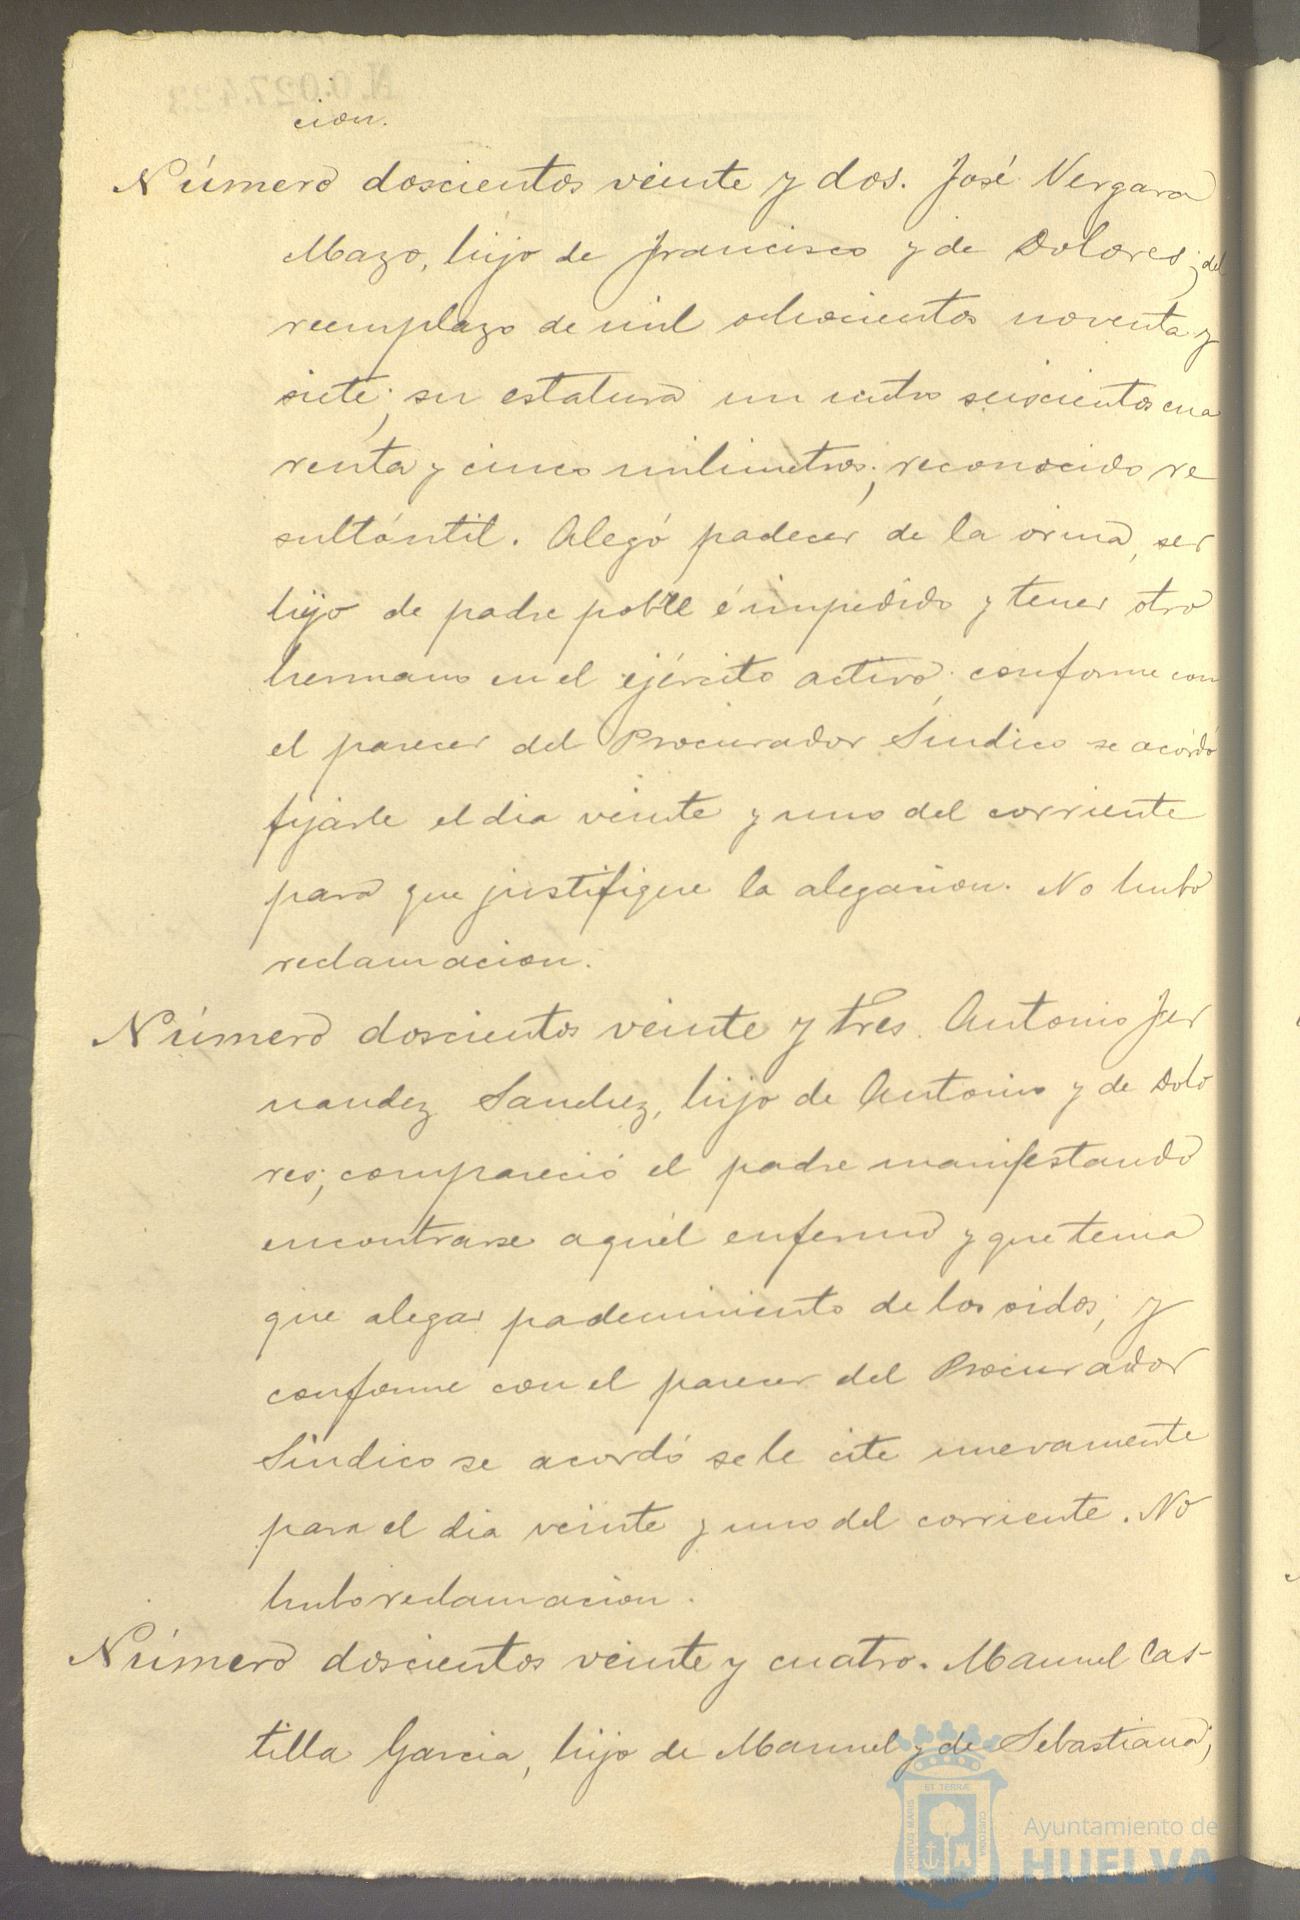 cion.
Número doscientos veinte y dos. José Vergara
Mazo, hijo de Francisco y de Dolores; del
reemplazo de mil ochocientos noventa y
siete; su estatura un metro seiscientos cua
renta y cinco milimetros; reconocido re
sultó útil. Alegó padecer de la orina, ser
hijo de padre pobre é impedido y tener otro
hermano en el ejército activo; conforme con
el parecer del Procurador Síndico se acordó
fijarle el dia veinte y uno del corriente
para que justifique la alegacion. No hubo
reclamacion.
Número doscientos veinte y tres. Antonio Fer
nandez Sanchez, hijo de Antonio y de Dolo
res; compareció el padre manifestando
encontrarse aquél enfermo y que tenia
que alegar padecimiento de los oidos; y
conforme con el parecer del Procurador
Síndico se acordó se le cite nuevamente
para el dia veinte y uno del corriente. No
hubo reclamacion.
Número doscientos veinte y cuatro. Manuel Cas-
tilla Garcia, hijo de Manuel y de Sebastiana;
ET TERRÆ
PORTUS MARIS
CUSTODIA
Ayuntamiento de
HUELVA